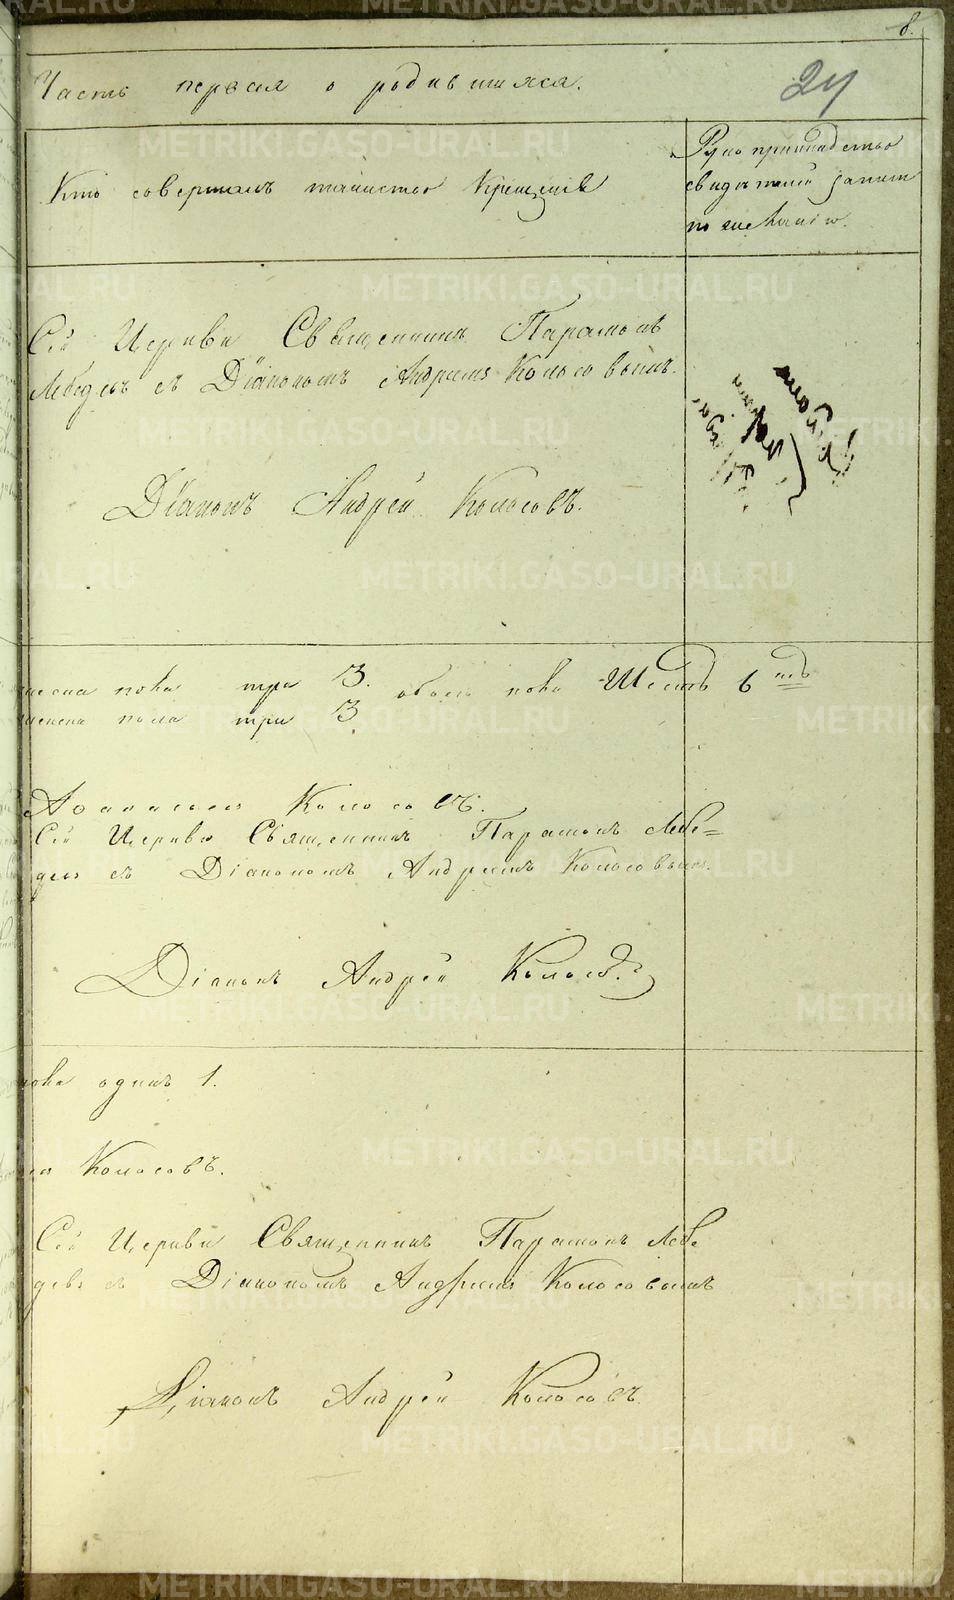 8.
Часть первая о родившихся.
24
Кто совершалъ таинство Крещенія
свидѣтелей запис
по желанію.
Сей Церкви Священникъ Парамонъ
Лебедевъ съ Діакономъ Андреемъ Колосовымъ.
Діаконъ Андрей Колосовъ.
пола три 3. обоего пола Шесть 6
женска пола три 3.
Колосовъ.
Сей Церкви Священникъ Парамонъ Лебе=
девъ съ Діакономъ Андреемъ Колосовымъ.
Діаконъ Андрей Колосовъ
пола одинъ 1.
Колосовъ.
Сей Церкви Священникъ Парамонъ Лебе
девъ съ Діакономъ Андреемъ Колосовымъ
Діаконъ Андрей Колосовъ
METRIKI.GASO-URAL.RU